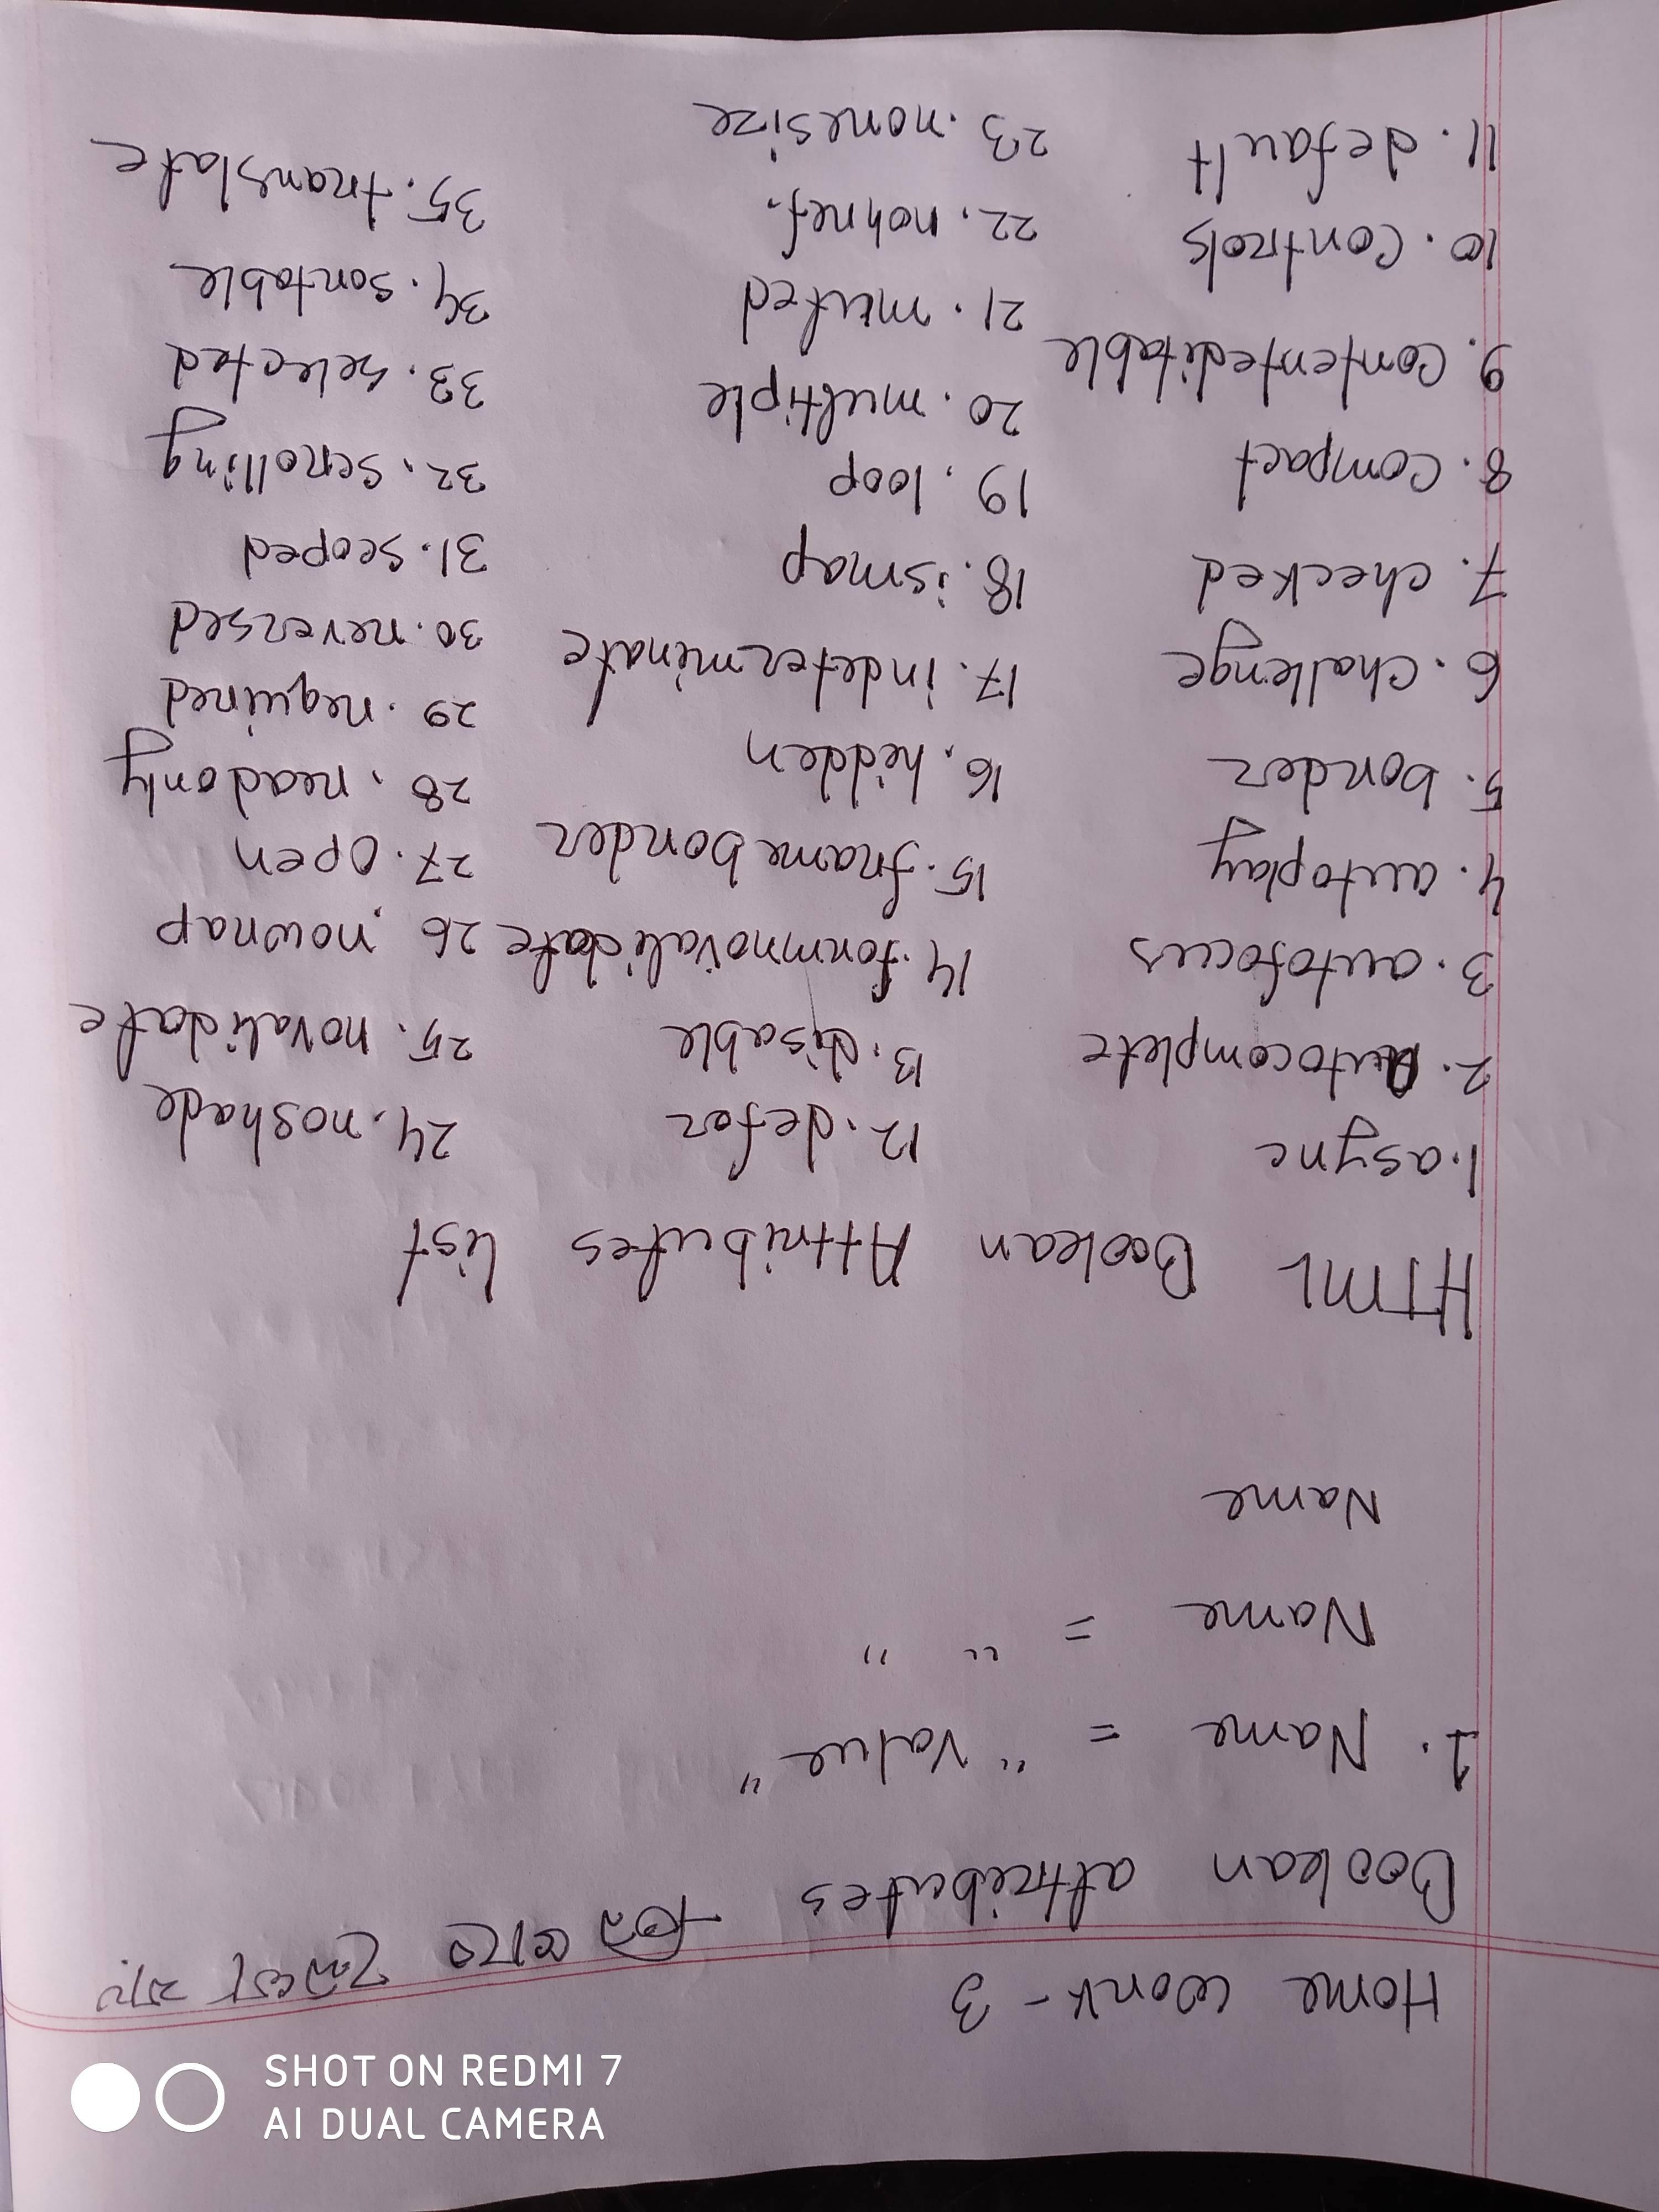 SHOT ON REDMI 7
AI DUAL CAMERA
Home work - 3
Boolean attributes তিন ভাবে লেখা যায়
1. Name = "Value"
Name = " "
Name
HTML Boolean Attributes list
1. async
2. Autocomplete
3. autofocus
4. autoplay
5. border
6. challenge
7. checked
8. compact
9. contenteditable
10. controls
11. default
12. defer
13. disable
14. formnovalidate
15. frameborder
16. hidden
17. indeterminate
18. ismap
19. loop
20. multiple
21. muted
22. nohref.
23. noresize
24. noshade
25. novalidate
26. nowrap
27. open
28. readonly
29. required
30. reversed
31. scoped
32. scrolling
33. selected
34. sortable
35. translate